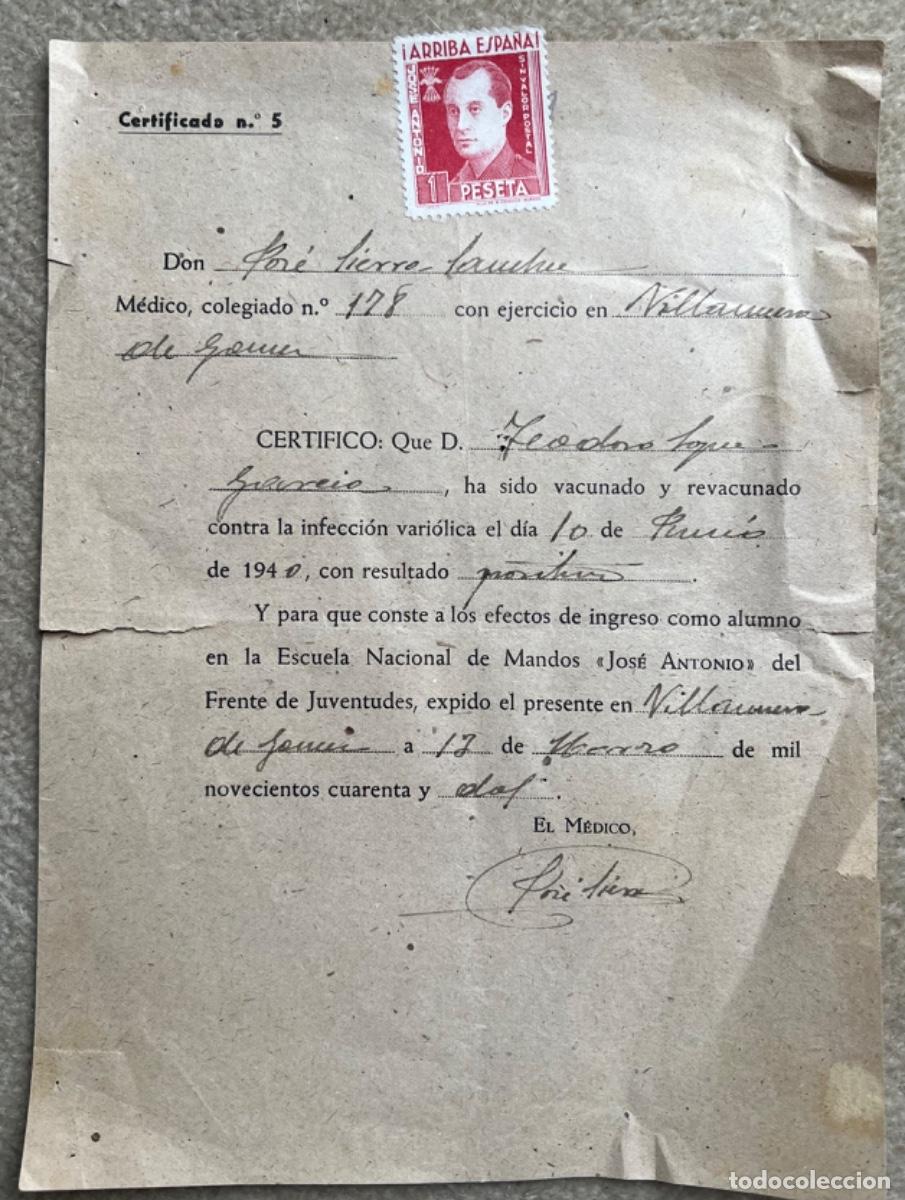 ¡ARRIBA ESPAÑA!
JOSE ANTONIO
SIN VALOR POSTAL
1 PESETA
Certificado n.º 5
Don José Sierra Sanchez
Médico, colegiado n.º 178 con ejercicio en Villanueva
de Gomez
CERTIFICO: Que D. Teodoro Lopez
Garcia, ha sido vacunado y revacunado
contra la infección variólica el día 10 de Junio
de 1940, con resultado positivo.
Y para que conste a los efectos de ingreso como alumno
en la Escuela Nacional de Mandos «JOSÉ ANTONIO» del
Frente de Juventudes, expido el presente en Villanueva
de Gomez a 17 de Marzo de mil
novecientos cuarenta y dos.
EL MÉDICO,
José Sierra
todocoleccion